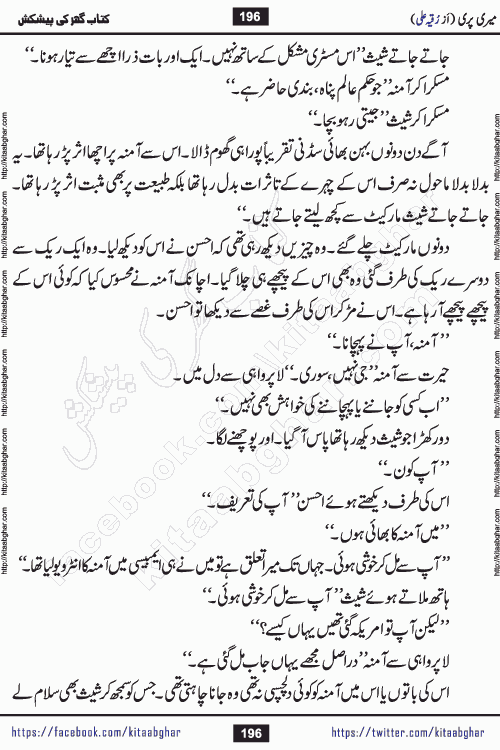 میری پری (از رُقیہ علی)
196
کتاب گھر کی پیشکش
جاتے جاتے شیث ’’اس مسٹری مشکل کے ساتھ نہیں۔ ایک اور بات ذرا اچھے سے تیار ہونا۔‘‘
مسکرا کر آمنہ ’’جو حکم عالم پناہ، بندی حاضر ہے۔‘‘
مسکرا کر شیث ’’جیتی رہو بچا۔‘‘
آگے دن دونوں بہن بھائی سڈنی تقریباً پورا ہی گھوم ڈالا۔ اس سے آمنہ پر اچھا اثر پڑ رہا تھا۔ یہ
بدلا بدلا ماحول نہ صرف اس کے چہرے کے تاثرات بدل رہا تھا بلکہ طبیعت پر بھی مثبت اثر پڑ رہا تھا۔
جاتے جاتے شیث مارکیٹ سے کچھ لیتے جاتے ہیں۔‘‘
دونوں مارکیٹ چلے گئے۔ وہ چیزیں دیکھ رہی تھی کہ احسن نے اس کو دیکھ لیا۔ وہ ایک ریک سے
دوسرے ریک کی طرف گئی وہ بھی اس کے پیچھے ہی چلا گیا۔ اچانک آمنہ نے محسوس کیا کہ کوئی اس کے
پیچھے پیچھے آ رہا ہے۔ اس نے مڑ کر اس کی طرف غصے سے دیکھا تو احسن۔
’’آمنہ، آپ نے پہچانا۔‘‘
حیرت سے آمنہ ’’جی نہیں، سوری۔‘‘ لاپرواہی سے دل میں۔
’’اب کسی کو جاننے یا پہچاننے کی خواہش بھی نہیں۔‘‘
دور کھڑا جو شیث دیکھ رہا تھا پاس آ گیا۔ اور پوچھنے لگا۔
’’آپ کون۔‘‘
اس کی طرف دیکھتے ہوئے احسن ’’آپ کی تعریف۔‘‘
’’میں آمنہ کا بھائی ہوں۔‘‘
’’آپ سے مل کر خوشی ہوئی۔ جہاں تک میرا تعلق ہے تو میں نے ہی ایمبیسی میں آمنہ کا انٹرویو لیا تھا۔‘‘
ہاتھ ملاتے ہوئے شیث ’’آپ سے مل کر خوشی ہوئی۔‘‘
’’لیکن آپ تو امریکہ گئی تھیں یہاں کیسے؟‘‘
لاپرواہی سے آمنہ ’’دراصل مجھے یہاں جاب مل گئی ہے۔‘‘
اس کی باتوں یا اس میں آمنہ کو کوئی دلچسپی نہ تھی وہ جانا چاہتی تھی۔ جس کو سمجھ کر شیث بھی سلام لے
https://facebook.com/kitaabghar
196
https://twitter.com/kitaabghar
http://kitaabghar.com
http://kitaabghar.com
http://kitaabghar.com
http://kitaabghar.com
http://kitaabghar.com
http://kitaabghar.com
http://kitaabghar.com
http://kitaabghar.com
http://kitaabghar.com
http://kitaabghar.com
http://kitaabghar.com
http://kitaabghar.com
کتاب گھر کی پیشکش
facebook.com/kitaabghar
kitaabghar.com